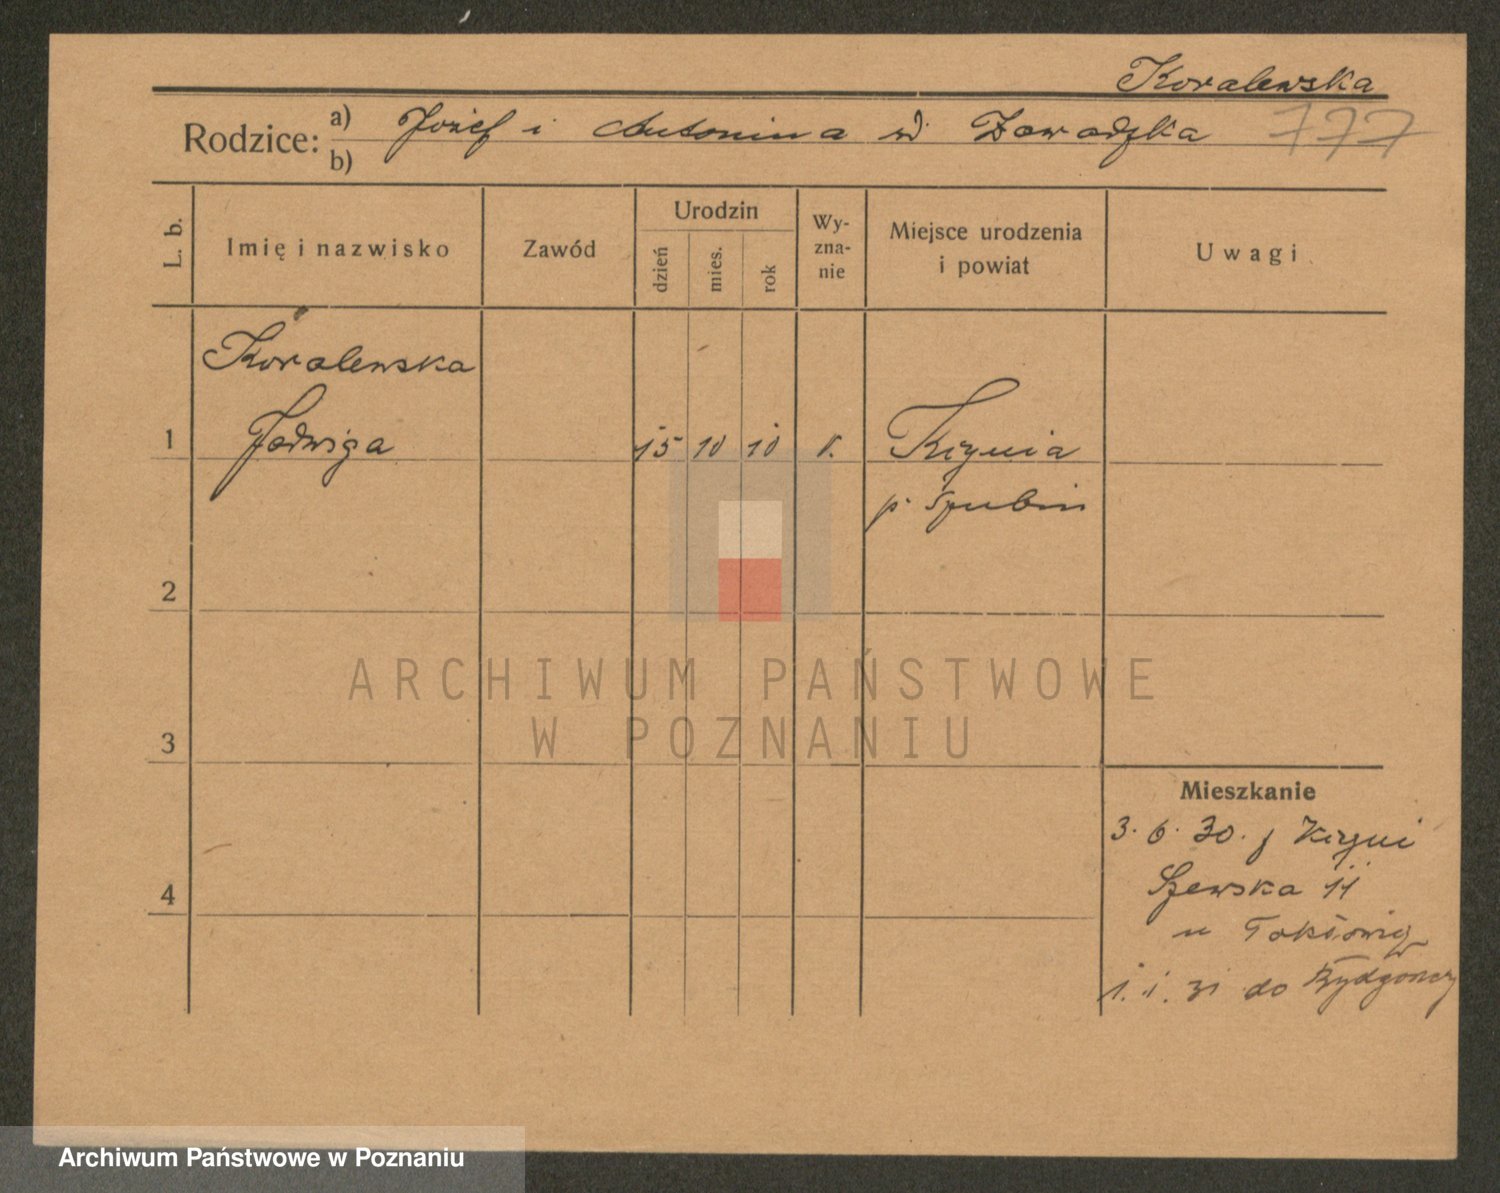 Koralewska
Rodzice: a) Józef i Antonina d. Zawadzka 777
b)
L. b.
Imię i nazwisko
Zawód
Urodzin
dzień
mies.
rok
Wy-
zna-
nie
Miejsce urodzenia
i powiat
Uwagi
Koralewska
1 Jadwiga 15 10 10 r. Kcynia
p. Szubin
2
ARCHIWUM PAŃSTWOWE
W POZNANIU
3
Mieszkanie
3. 6. 30. z Kcyni
4 Szewska 11
u
1. 1. 31 do Bydgoszczy
Archiwum Państwowe w Poznaniu